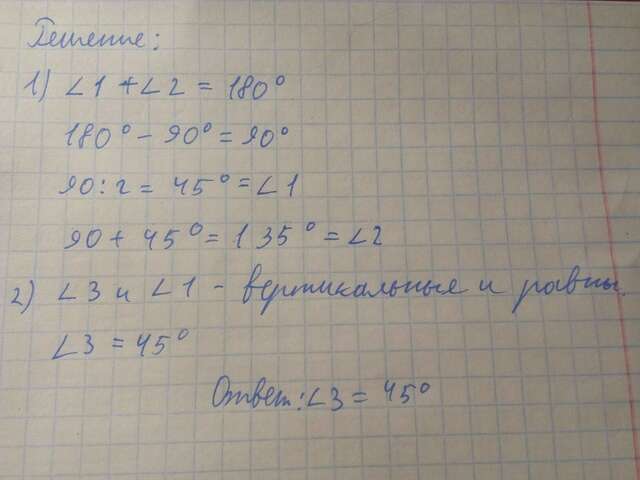 Решение:
1) ∠1 + ∠2 = 180°
180° - 90° = 90°
90 : 2 = 45° = ∠1
90 + 45° = 135° = ∠2
2) ∠3 и ∠1 - вертикальные и равны.
∠3 = 45°
Ответ: ∠3 = 45°